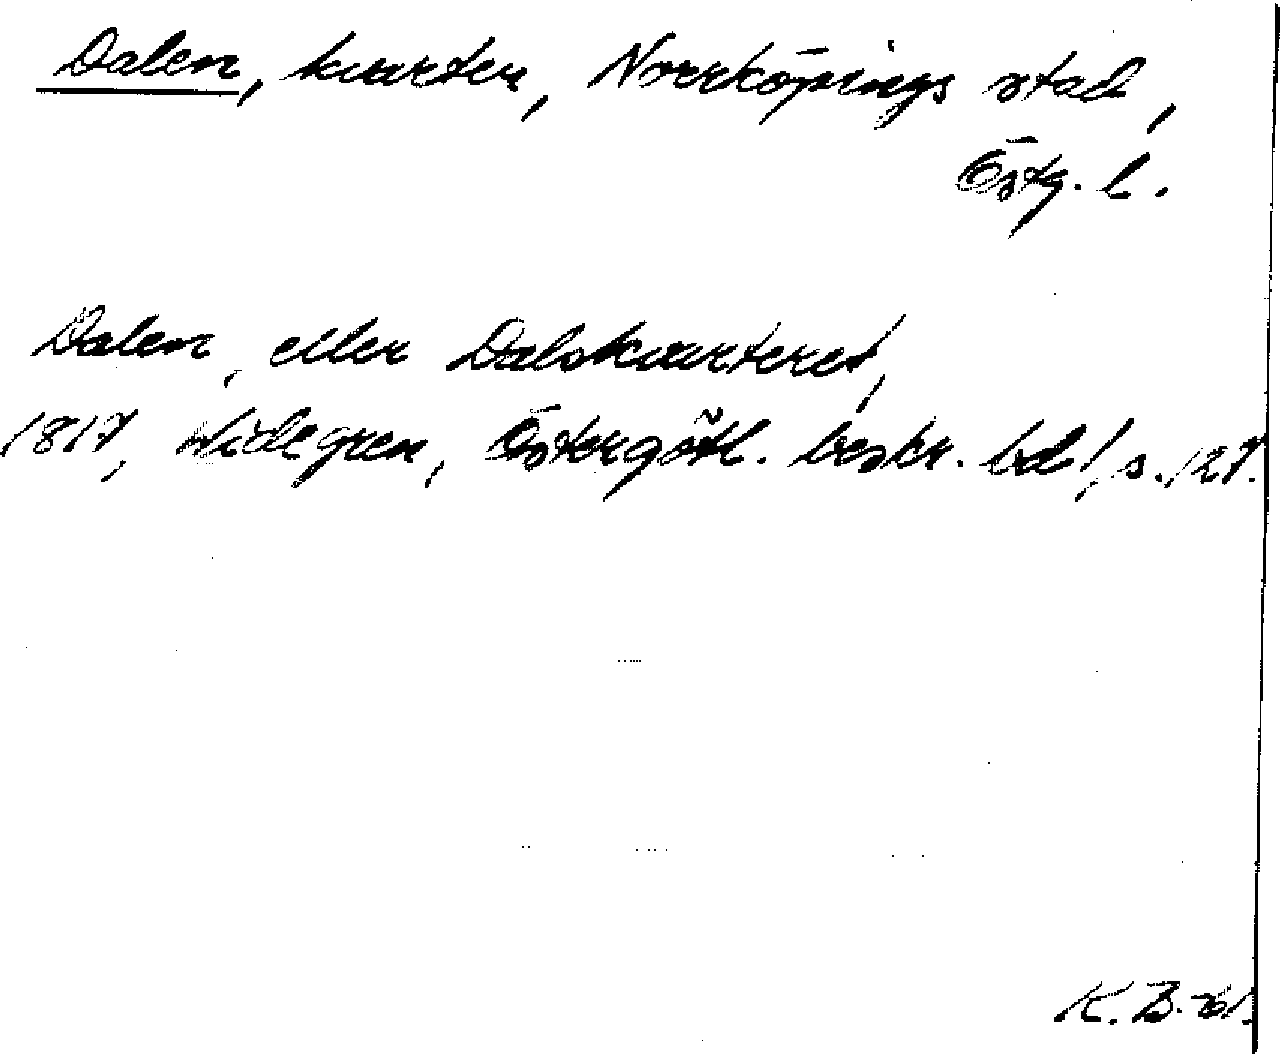 Dalen, kvarter, Norrköpings stad,
Östg. l.
Dalen, eller Dalskvarteret,
1817, Widegren, Östergötl. beskr. bd 1, s. 127.
K. B. -61.